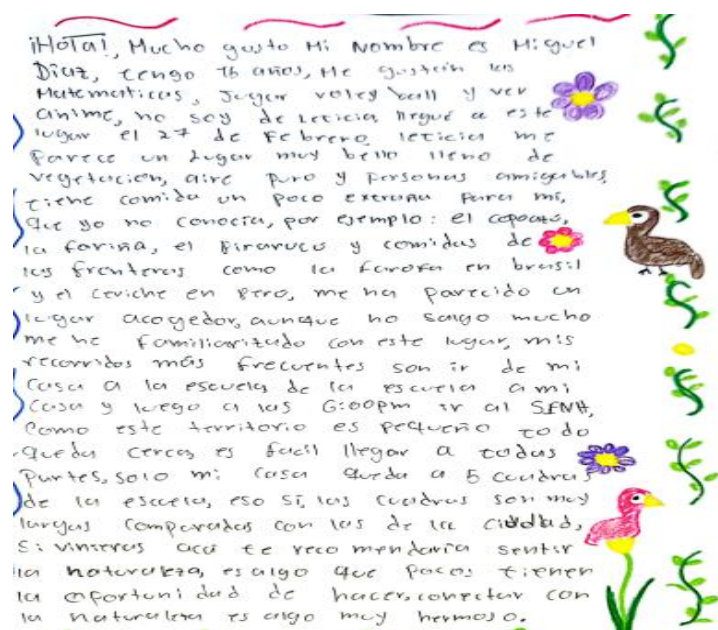 ¡Hola!, Mucho gusto Mi Nombre es Miguel
Díaz, tengo 16 años, Me gustan las
Matematicas, Jugar voley ball y ver
anime, no soy de leticia llegué a este
lugar el 27 de Febrero, leticia me
Parece un Lugar muy bello lleno de
vegetacion, aire Puro y Personas amigables,
tiene comida un poco extraña Para mi,
que yo no conocia, por ejemplo: el copoazo,
la fariña, el Pirarucu y comidas de
las fronteras como la farofa en brasil
y el ceviche en Perú, me ha parecido un
lugar acogedor, aunque no salgo mucho
me he familiarizado con este lugar, mis
recorridos más frecuentes son ir de mi
casa a la escuela de la escuela a mi
casa y luego a las 6:00pm ir al SENA,
Como este territorio es pequeño todo
queda cerca es facil llegar a todas
Partes, solo mi casa queda a 5 cuadras
de la escuela, eso sí, las cuadras son muy
largas Comparadas con las de la ciudad,
Si vinieras acá te recomendaria sentir
la naturaleza, es algo que pocos tienen
la oportunidad de hacer, conectar con
la naturaleza es algo muy hermoso.